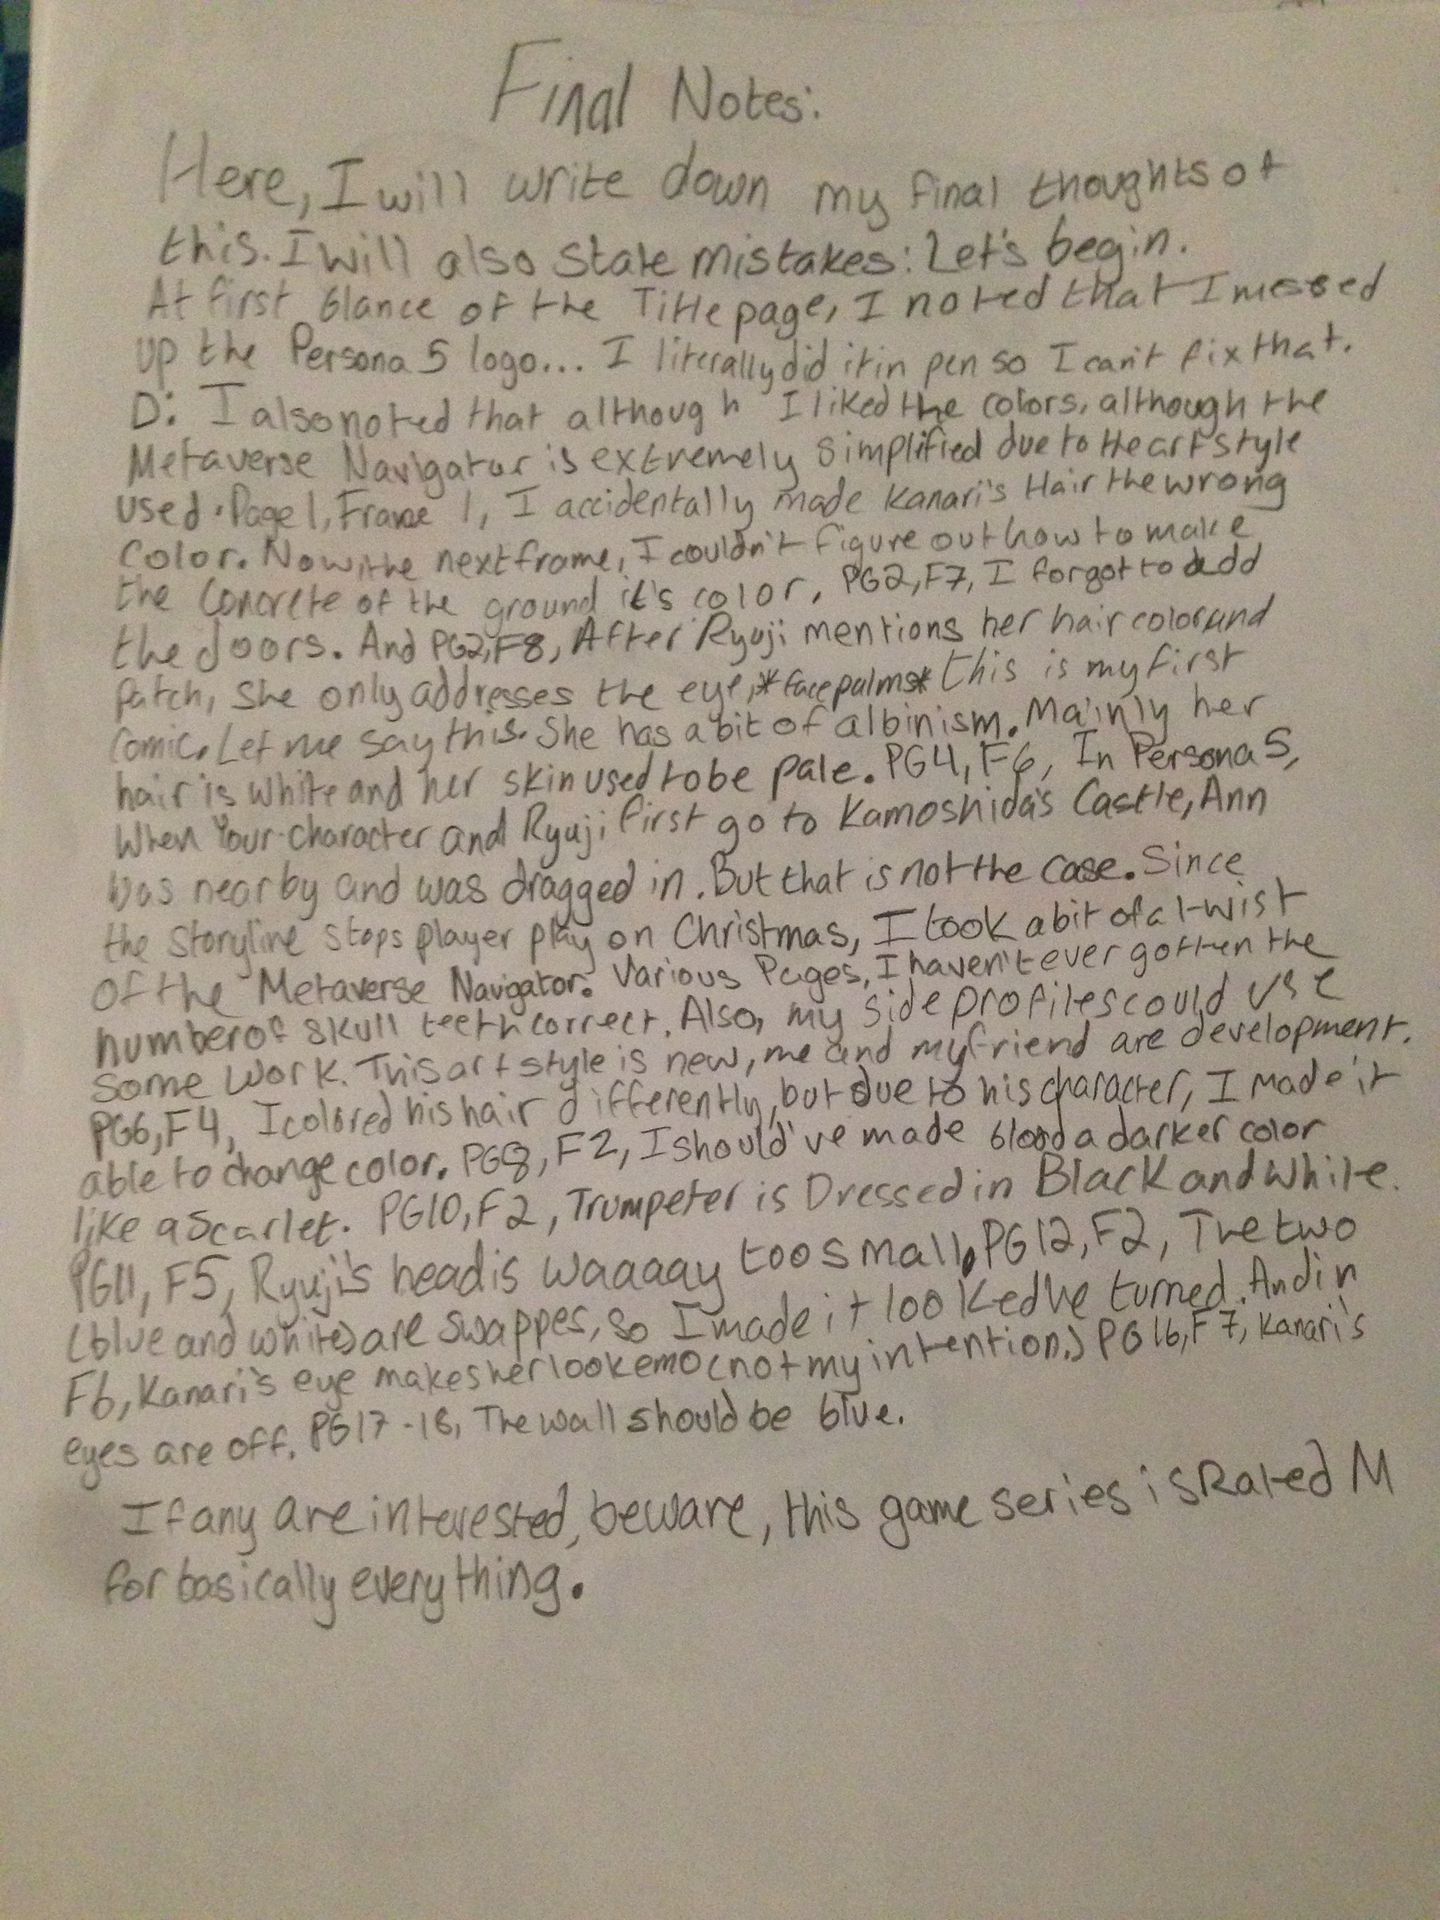 Final Notes:
Here, I will write down my final thoughts of
this. I will also state mistakes: Let's begin.
At first Glance of the Title page, I noted that I messed
up the Persona 5 logo... I literally did it in pen so I can't fix that.
D: I also noted that although I liked the colors, although the
Metaverse Navigator is extremely simplified due to the art style
used. Page 1, Frame 1, I accidentally made Kanari's Hair the wrong
color. Now the next frame, I couldn't figure out how to make
the concrete of the ground it's color. PG2, F7, I forgot to add
the doors. And PG2, F8, After Ryuji mentions her hair color and
patch, she only addresses the eye, *facepalms* this is my first
comic. Let me say this. She has a bit of albinism. Mainly her
hair is white and her skin used to be pale. PG4, F6, In Persona 5,
When Your character and Ryuji first go to Kamoshida's Castle, Ann
was nearby and was dragged in. But that is not the case. Since
the storyline stops player play on Christmas, I took a bit of a twist
of the Metaverse Navigator. Various Pages, I haven't ever gotten the
number of skull teeth correct. Also, my side profiles could use
some work. This art style is new, me and my friend are development.
PG6, F4, I colored his hair differently, but due to his character, I made it
able to change color. PG8, F2, I should've made blood a darker color
like a scarlet. PG10, F2, Trumpeter is Dressed in Black and White.
PG11, F5, Ryuji's head is waaaay too small. PG12, F2, The two
(blue and white) are swappes, so I made it looked he turned. And in
F6, Kanari's eye makes her look emo (not my intention.) PG16, F7, Kanari's
eyes are off. PG17-18, The wall should be blue.
If any are interested, beware, this game series is Rated M
for basically everything.